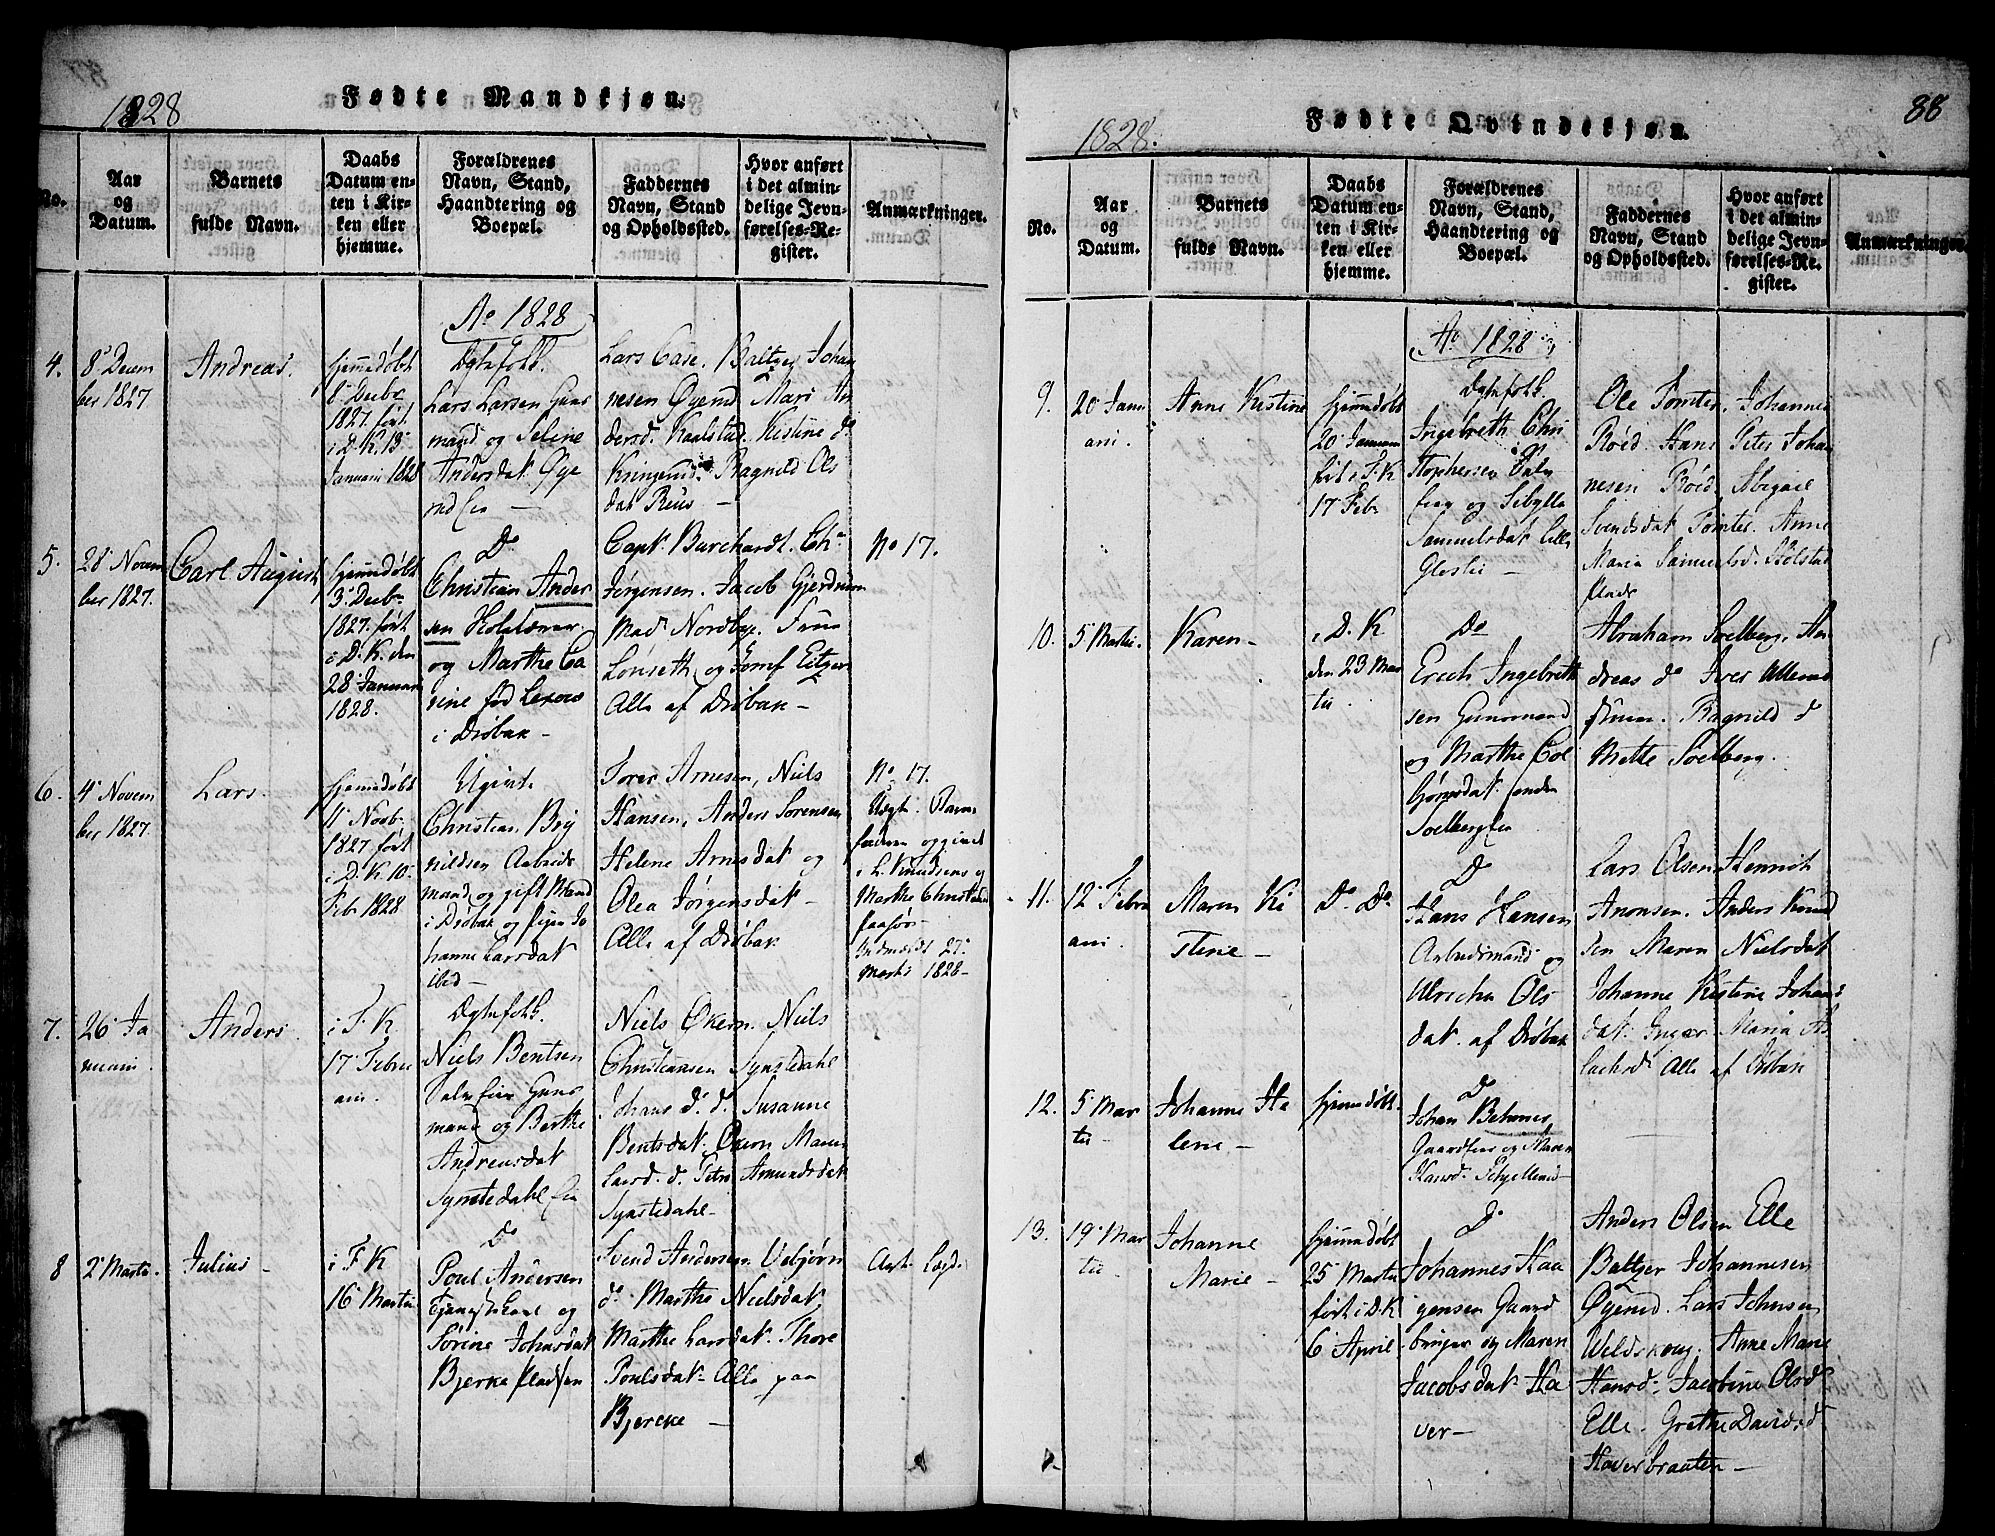 1828
Fødte Mandkjøn.
No.
Aar
og
Datum.
Barnets
fulde Navn.
Daabs
Datum en-
ten i Kir-
ken eller
hjemme.
Forældrenes
Navn, Stand,
Haandtering og
Boepæl.
Faddernes
Navn, Stand
og Opholdssted.
Hvor anført
i det almin-
delige Jevn-
førelses-Re-
gister.
Anmærkninger.
Ao 1828
4.
8 Decem
ber 1827
Andreas.
hjemmedøbt
8 Decbr
1827 ført
i D.K. 13
Januari 1828
Ægtefolk.
Lars Larsen Huus
mand og Seline
Andersdat Øye
Lars Case. Baltzer Johan
nesen Øyend Mari An
dersd. Kaalstad. Kistine do
Ragnild Ols
dat
5.
28 Novem
ber 1827.
Carl August
hjemmedøbt
3 Decbr
1827. ført
i D.K. den
28 Januari
1828.
Do
Christian Ander
sen
og Marthe Ca
rine fød
i Drøbak –
Capt. Burchardt. Chr
Jørgensen. Jacob Gjerdrum
Mad. Nordbye. Frue
Lonseth og Eitzen
Alle af Drøbak –
No 17.
6.
4 Novem
ber 1827.
Lars.
hjemmedøbt
11 Novbr
1827 ført
i D.K. 10
Febr 1828
Ugivt.
Christian Bry
nildsen Arbeids
mand og gift Mand
i Drøbak og Pigen Jo
hanne Larsdat
ibid –
Arnesen, Niels
Hansen, Anders Sørensen
Helene Arnesdat og
Olea Jørgensdat –
Alle af Drøbak –
No 17.
Uægt. Barne
faderen opgivet
i L. Knudsens og
Marthe
paasør
Indmeldt 27
Marti 1828 –
7.
26 Ja
nuari
Anders.
i F.K
17 Febru
ari.
Ægtefolk.
Niels Bentsen
mand og Berthe
Andreasdat
Synstedahl
Niels Økern. Niels
Christiansen Synstedahl
Johans d. d. Susanne
Bentsdat. Økern Maren
Larsd. d. Amundsdat
Synstedahl –
8
2 Marti.
Julius –
i F.K
16 Marti
Do
Poul Andersen
Tjenestekarl og
Sørine Johnsdat
Bjerke Pladsen
Svend Andersen. Vebjørn
do Marthe Nielsdat
Marthe Larsdat. Thore
Poulsdat Alle paa
Bjercke –
1828.
Fødte Qvindekjøn.
88
No.
Aar
og
Datum.
Barnets
fulde Navn.
Daabs
Datum en-
ten i Kir-
ken eller
hjemme.
Forældrenes
Navn, Stand,
Haandtering og
Boepæl.
Faddernes
Navn, Stand
og Opholdssted.
Hvor anført
i det almin-
delige Jevn-
førelses-Re-
gister.
Anmærkninger.
Ao 1828
9.
20 Janu
ari.
Anne Kistine
hjemmedøbt
20 Januari
ført i F.K
17 Febr
Ægtefolk.
Ingebreth Chri
stophersen
og Sibylla
Samuelsdat
Ole Tomter. Johannes
Røed. Hans Peter Johan
nesen Røed. Abigael
Svendsdat Tomter. Anne
Maria Samuelsd. Holstad
plads
10.
5 Marti.
Karen –
i D.K
den 23 Mar
tii.
Do
Erich Ingebreth
sen Huusmand
og Marthe Col
Abraham Soelberg. An
dreas do Iver
Ragnild do
Mette Soelberg.
11.
12 Febru
ari.
Maren Ki
stine –
Do Do
Do
Hans Hansen
Arbeidsmand og
Ulricha Ols
dat. af Drøbak
Lars Olsen Henrich
Aronsen. Anders Knud
sen Maren Nielsdat
Johanne Kistine Johans
dat. Inger Maria As
lachsd Alle af Drøbak
12.
5 Mar
tii –
Johanne Ha
lene –
hjemmedøbt.
Do
Johan
og Maren
Hansd.
13.
19 Mar
tii
Johanne
Marie –
hjemmedøbt
25 Martii
ført i D.K
6 April
Do
Johannes Haa
gensen Gaard
bruger og Maren
Jacobsdat Ha
ver –
Anders Olsen Elle
Baltzer Johannesen
Øyend. Lars Johnsen
Anne Marie
Hansd. Jacobine Olsd
Elle. Grethe Davidsd
Haverbraaten –